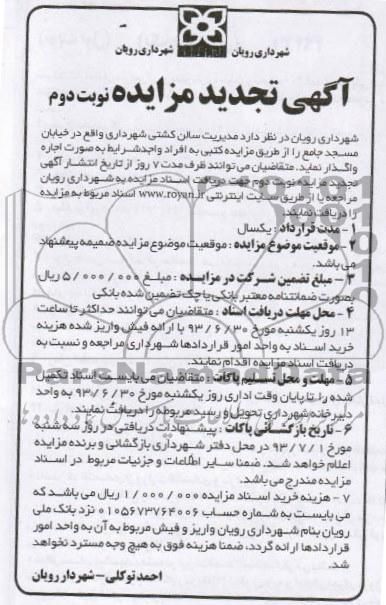 شهرداری رویان
شهرداری رویان
آگهی تجدید مزایده نوبت دوم
شهرداری رویان در نظر دارد مدیریت سالن کشتی شهرداری واقع در خیابان
مسجد جامع را از طریق مزایده کتبی به افراد واجدشرایط به صورت اجاره
واگذار نماید. متقاضیان می توانند ظرف مدت ۷ روز از تاریخ انتشار آگهی
تجدید مزایده نوبت دوم جهت دریافت اسناد مزایده به شهرداری رویان
مراجعه یا از طریق سایت اینترنتی www.royan.ir اسناد مربوط به مزایده
را دریافت نمایند.
۱- مدت قرارداد : یکسال
۲- موقعیت موضوع مزایده : موقعیت موضوع مزایده ضمیمه پیشنهاد
می باشد.
۳- مبلغ تضمین شرکت در مزایده : مبلغ ۵/۰۰۰/۰۰۰ ریال
بصورت ضمانتنامه معتبر بانکی یا چک تضمین شده بانکی
۴- محل مهلت دریافت اسناد : متقاضیان می توانند حداکثر تا ساعت
۱۳ روز یکشنبه مورخ ۹۳/۶/۳۰ با ارائه فیش واریز شده هزینه
خرید اسناد به واحد امور قراردادها شهرداری مراجعه و نسبت به
دریافت اسناد مزایده اقدام نمایند.
۵- مهلت و محل تسلیم پاکات : متقاضیان می بایست اسناد تکمیل
شده را تا پایان وقت اداری روز یکشنبه مورخ ۹۳/۶/۳۰ به واحد
دبیرخانه شهرداری تحویل و رسید مربوطه را دریافت نمایند.
۶- تاریخ بازگشائی پاکات : پیشنهادات دریافتی در روز سه شنبه
مورخ ۹۳/۷/۱ در محل دفتر شهرداری بازگشائی و برنده مزایده
اعلام خواهد شد. ضمنا سایر اطلاعات و جزئیات مربوط در اسناد
مزایده مندرج می باشد.
۷- هزینه خرید اسناد مزایده ۱/۰۰۰/۰۰۰ ریال می باشد که
می بایست به شماره حساب ۰۱۰۵۶۷۳۷۶۴۰۰۶ نزد بانک ملی
رویان بنام شهرداری رویان واریز و فیش مربوط به آن به واحد امور
قراردادها ارائه گردد، ضمنا هزینه فوق به هیچ وجه مسترد نخواهد
شد.
احمد توکلی - شهردار رویان